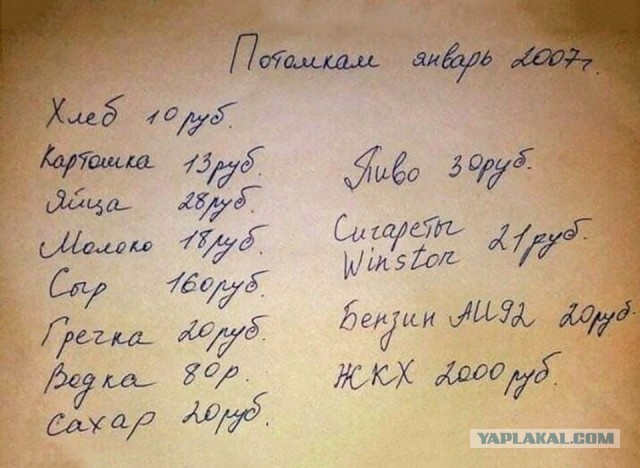 Потомкам январь 2007г.
Хлеб 10руб.
Картошка 13руб.
Яйца 28руб.
Молоко 18руб.
Сыр 160руб.
Гречка 20руб.
Водка 80р.
Сахар 20руб.
Пиво 30руб.
Сигареты
Winston 21руб.
Бензин АИ92 20руб.
ЖКХ 2000руб.
YAPLAKAL.COM